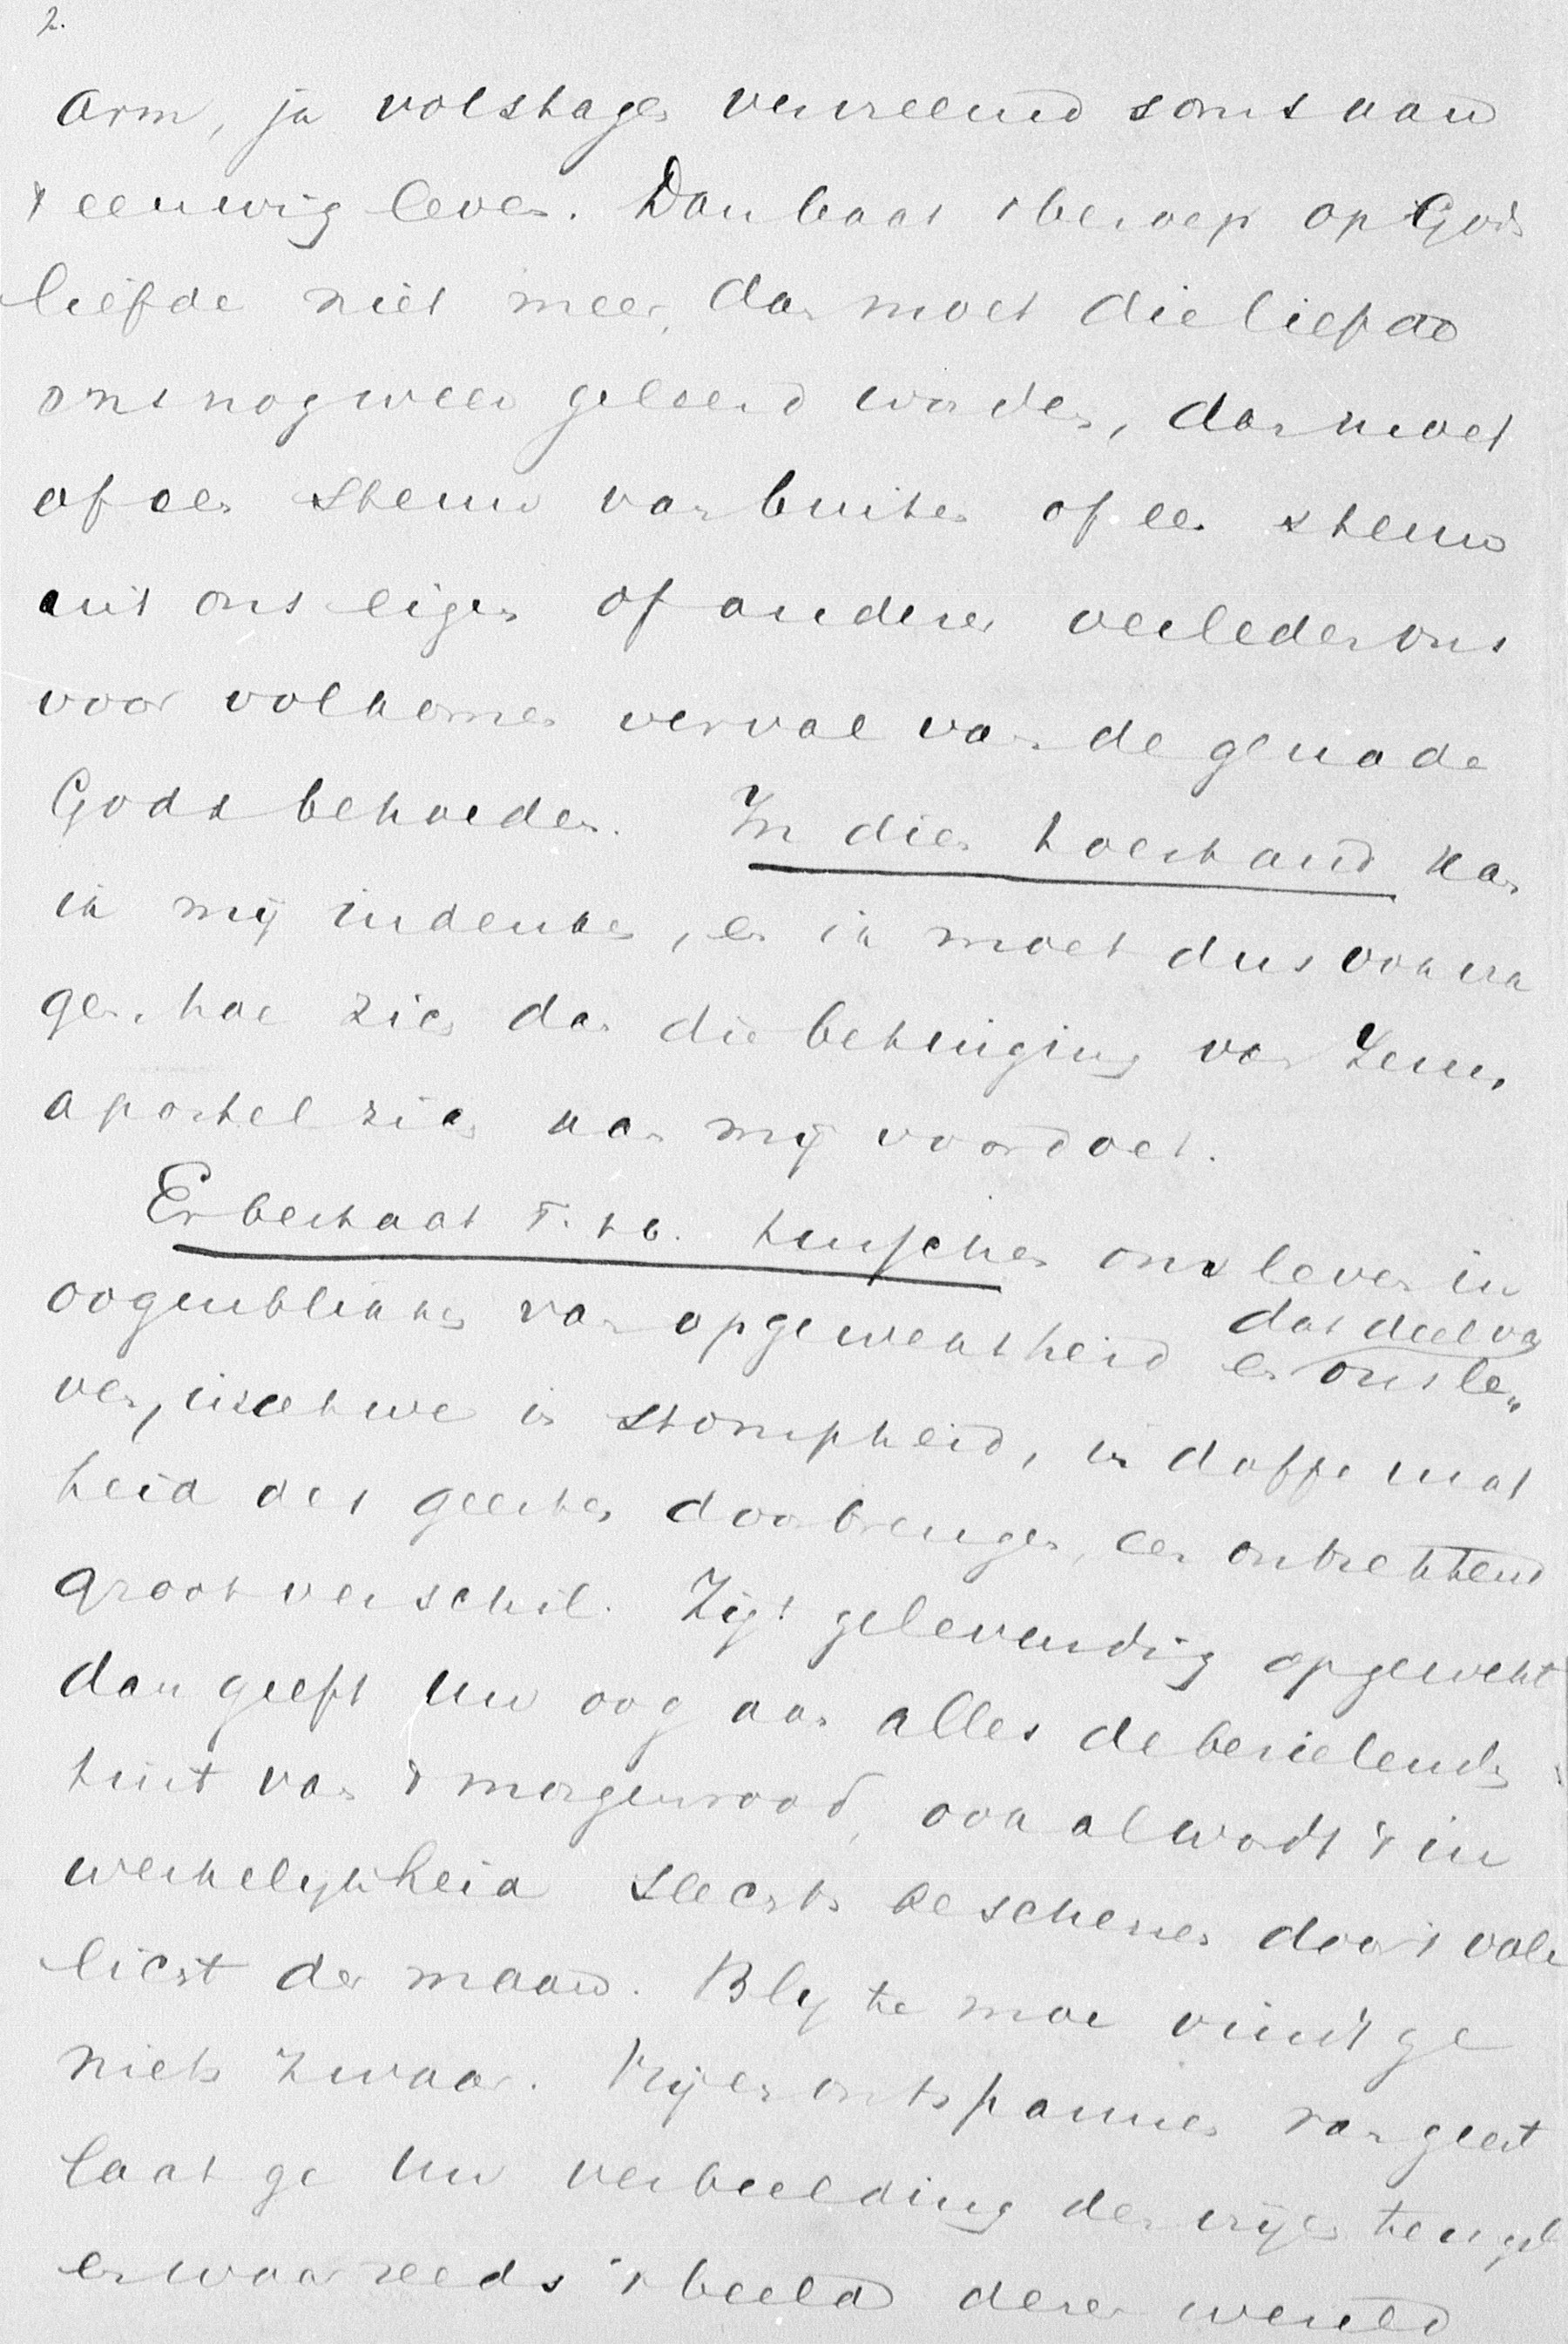 2.
arm, ja volslagen vervreemd soms van
't eeuwig leven. Dan baat 't beroep op Gods
liefde niet meer, dan moet die liefde
ons nog weer geleerd worden, dan moet
of een stem van buiten of een stem
uit ons eigen of anderer verleden ons
voor volkomen verval van de genade
Gods behoeden. In dien toestand kan
ik mij indenken, en ik moet dus ook vra
gen, hoe zich dan die betuiging van Jezus'
apostel zich aan mij voordoet.
Er bestaat T. tb. tusschen ons leven in
oogenblikken van opgewektheid en dat deel van ons le„
ven, 'twelk we in stompheid, in doffe mat
heid des geestes doorbrengen, een ontzettend
groot verschil. Zijt ge levendig opgewekt
dan geeft uw oog aan alles de bezielende
tint van 't morgenrood, ook al wordt 't in
werkelijkheid slechts beschenen door 't vale
licht der maan. Bly te moe vindt ge
niets zwaar. Vrij en ontspannen van geest
laat ge uw verbeelding den vrijen teugel
en waar reeds 't beeld dezer wereld